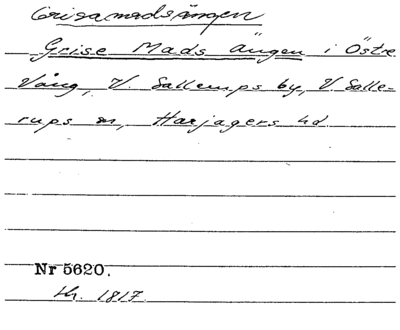 Grisamadsängen
Grise Mads Ängen i Östre
Vång, V. Sallerups by, V Salle-
rups sn, Harjagers hd
Nr 5620.
kr. 1817.